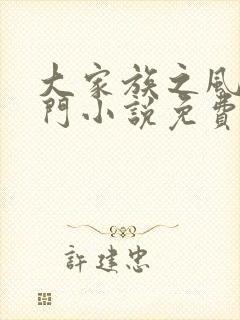 大家族之風
門小説免費
許建忠